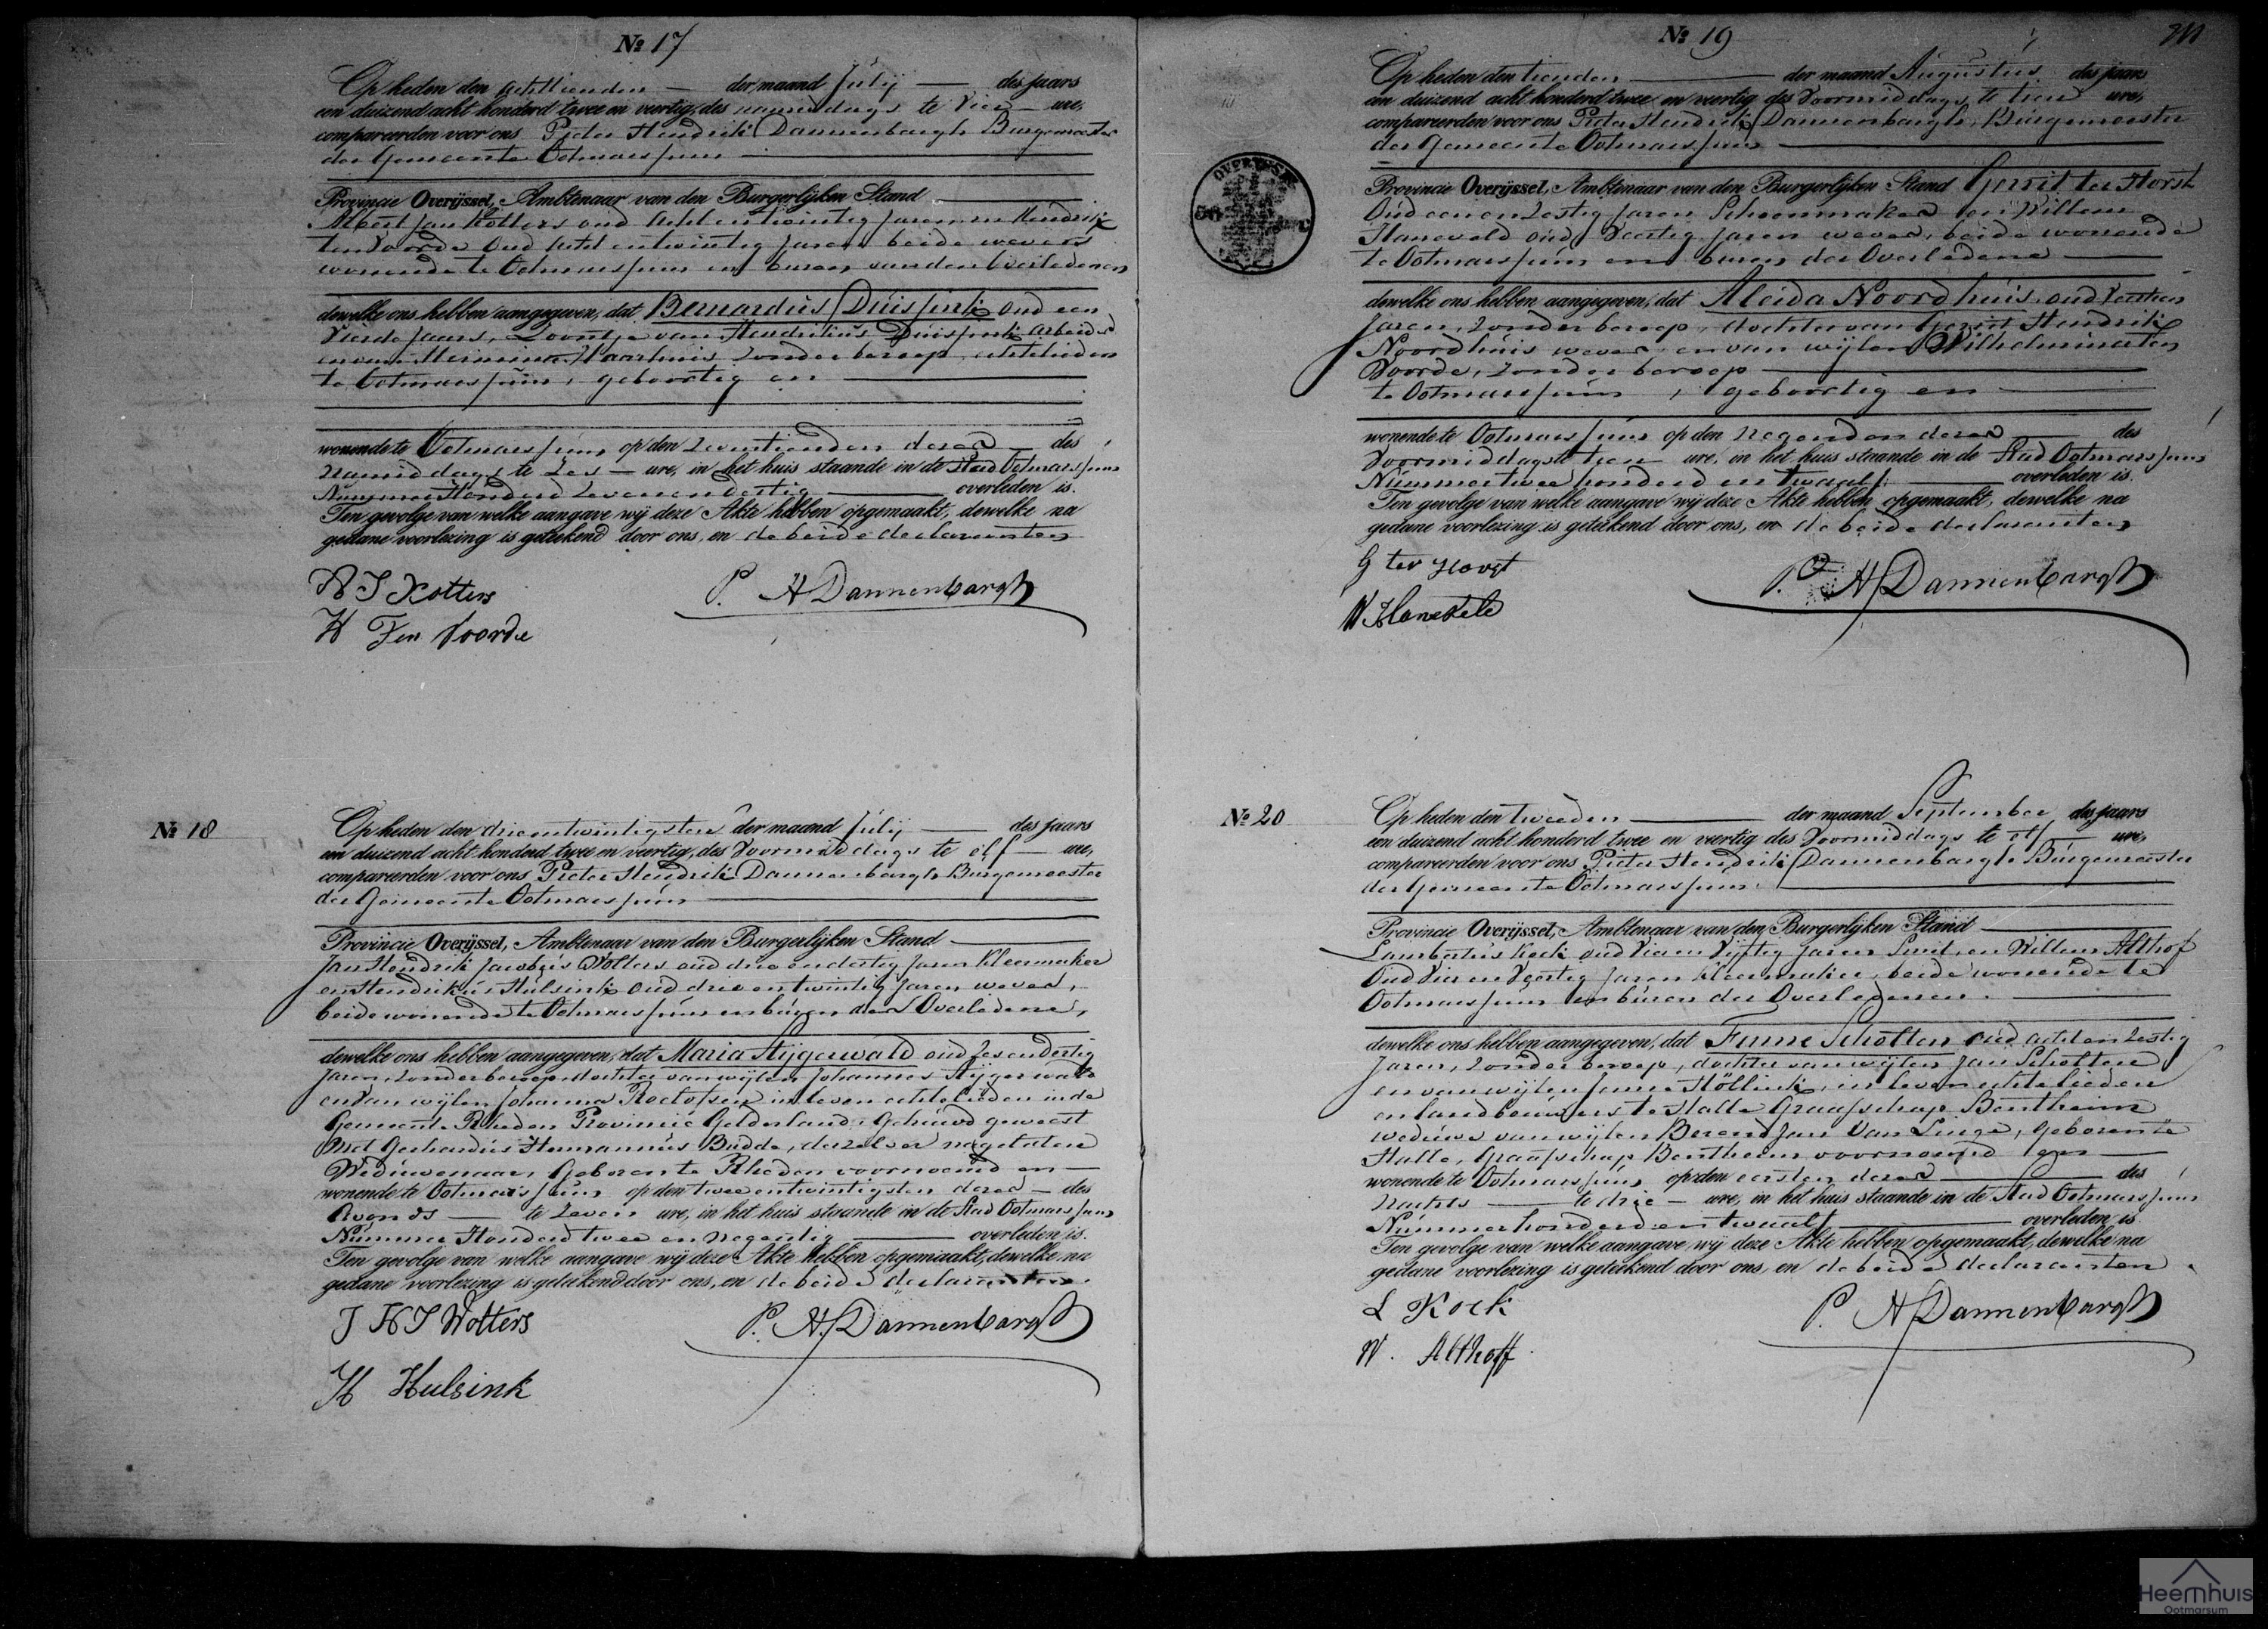 № 17
Op heden den achttienden der maand Julij des jaars
een duizend acht honderd twee en veertig, des namiddags te vier ure,
compareerden voor ons Pieter Hendrik Dannenbargh Burgemeester
der Gemeente Ootmarssum
Provincie Overijssel, Ambtenaar van den Burgerlijken Stand
Albert Jan Kotters oud achtentwintig jaren en Hendrik
ten Voorde oud achtentwintig jaren beide wevers
wonende te Ootmarssum en buren van den Overledenen
dewelke ons hebben aangegeven, dat Bernardus Duissink oud een
vierde jaars, zoontje van Hendrikus Duissink arbeider
en van Haarhuis zonder beroep, echtelieden
te Ootmarssum, geboortig en
wonende te Ootmarssum op den zeventienden dezer des
namiddags te zes ure, in het huis staande in de Stad Ootmarssum
Nummer Honderd zevenendertig overleden is.
Ten gevolge van welke aangave wij deze Akte hebben opgemaakt, dewelke na
gedane voorlezing is geteekend door ons, en de beide declaranten
A J Kotters
P. H Dannenbargh
H Ten Voorde
№ 18
Op heden den drieentwintigsten der maand Julij des jaars
een duizend acht honderd twee en veertig, des Voormiddags te elf ure,
compareerden voor ons Pieter Hendrik Dannenbargh Burgemeester
der Gemeente Ootmarssum
Provincie Overijssel, Ambtenaar van den Burgerlijken Stand
Jan Hendrik Jacobus Wolters oud drie en dertig Jaren Kleermaker
en Hendrikus Hulsink oud drie en twintig Jaren wever,
beide wonende te Ootmarssum en buren der Overledene,
dewelke ons hebben aangegeven, dat Maria Stijgerwald oud zesendertig
Jaren, zonder beroep dochter van wijlen Johannes Stijgerwald
en van wijlen Johanna in leven echtelieden in de
Gemeente Rheden Provincie Gelderland, Gehuwd geweest
Met Gerhardus Hermannus Budde, deszelver nagelatene
Weduwenaar, Geboren te Rheden voornoemd en
wonende te Ootmarssum op den twee entwintigsten dezer des
Avonds te zeven ure, in het huis staande in de Stad Ootmarssum
Nummer Honderd twee en negentig overleden is.
Ten gevolge van welke aangave wij deze Akte hebben opgemaakt, dewelke na
gedane voorlezing is geteekend door ons, en de beide declaranten.
J H J Wolters
P. H. Dannenbargh
H Hulsink
№ 19
Op heden den tienden der maand Augustus des jaars
een duizend acht honderd twee en veertig des Voormiddags te tien ure,
compareerden voor ons Pieter Hendrik Dannenbargh, Burgemeester
der Gemeente Ootmarssum
OVERYSSEL
Provincie Overijssel, Ambtenaar van den Burgerlijken Stand Gerrit ter Horst
Oud een en zestig Jaren Schoenmaker en Willem
Haneveld oud Veertig Jaren wever, beide wonende
te Ootmarssum en buren der Overledene
dewelke ons hebben aangegeven, dat Aleida Noordhuis, oud
Jaren, zonder beroep, dochter van Gerrit Hendrik
Noordhuis wever en van wijlen Wilhelmina ten
Voorde, zonder beroep
te Ootmarssum, geboortig en
wonende te Ootmarssum op den negenden dezer des
Voormiddags te tien ure, in het huis staande in de Stad Ootmarssum
Nummer twee honderd en twaalf overleden is.
Ten gevolge van welke aangave wij deze Akte hebben opgemaakt, dewelke na
gedane voorlezing is geteekend door ons, en de beide declaranten
G ter Horst
P. H Dannenbargh
W Haneveld
№ 20
Op heden den tweeden der maand September des jaars
een duizend acht honderd twee en veertig des Voormiddags te elf ure,
compareerden voor ons Pieter Hendrik Dannenbargh Burgemeester
der Gemeente Ootmarssum
Provincie Overijssel, Ambtenaar van den Burgerlijken Stand
Lambertus Kock oud Vier en Vijftig Jaren Smit, en Willem Althof
Oud Vier en Veertig Jaren Kleermaker, beide wonende te
Ootmarssum en buren der Overledenen.
dewelke ons hebben aangegeven, dat Fenne Scholten oud acht en zestig
Jaren, zonder beroep, dochter van wijlen Jan Scholten
en van wijlen Hollink, in leven echtelieden
en landbouwers te Halle Graafschap Bentheim
weduwe van wijlen Berend Jan Van Linge, Geboren te
Halle, Graafschap Bentheim voornoemd en
wonende te Ootmarssum op den eersten dezer des
nachts te drie ure, in het huis staande in de Stad Ootmarssum
Nummer honderd en twaalf overleden is.
Ten gevolge van welke aangave wij deze Akte hebben opgemaakt, dewelke na
gedane voorlezing is geteekend door ons, en de beide declaranten.
L Kock
P. H Dannenbargh
W. Althoff.
Heemhuis
Ootmarsum